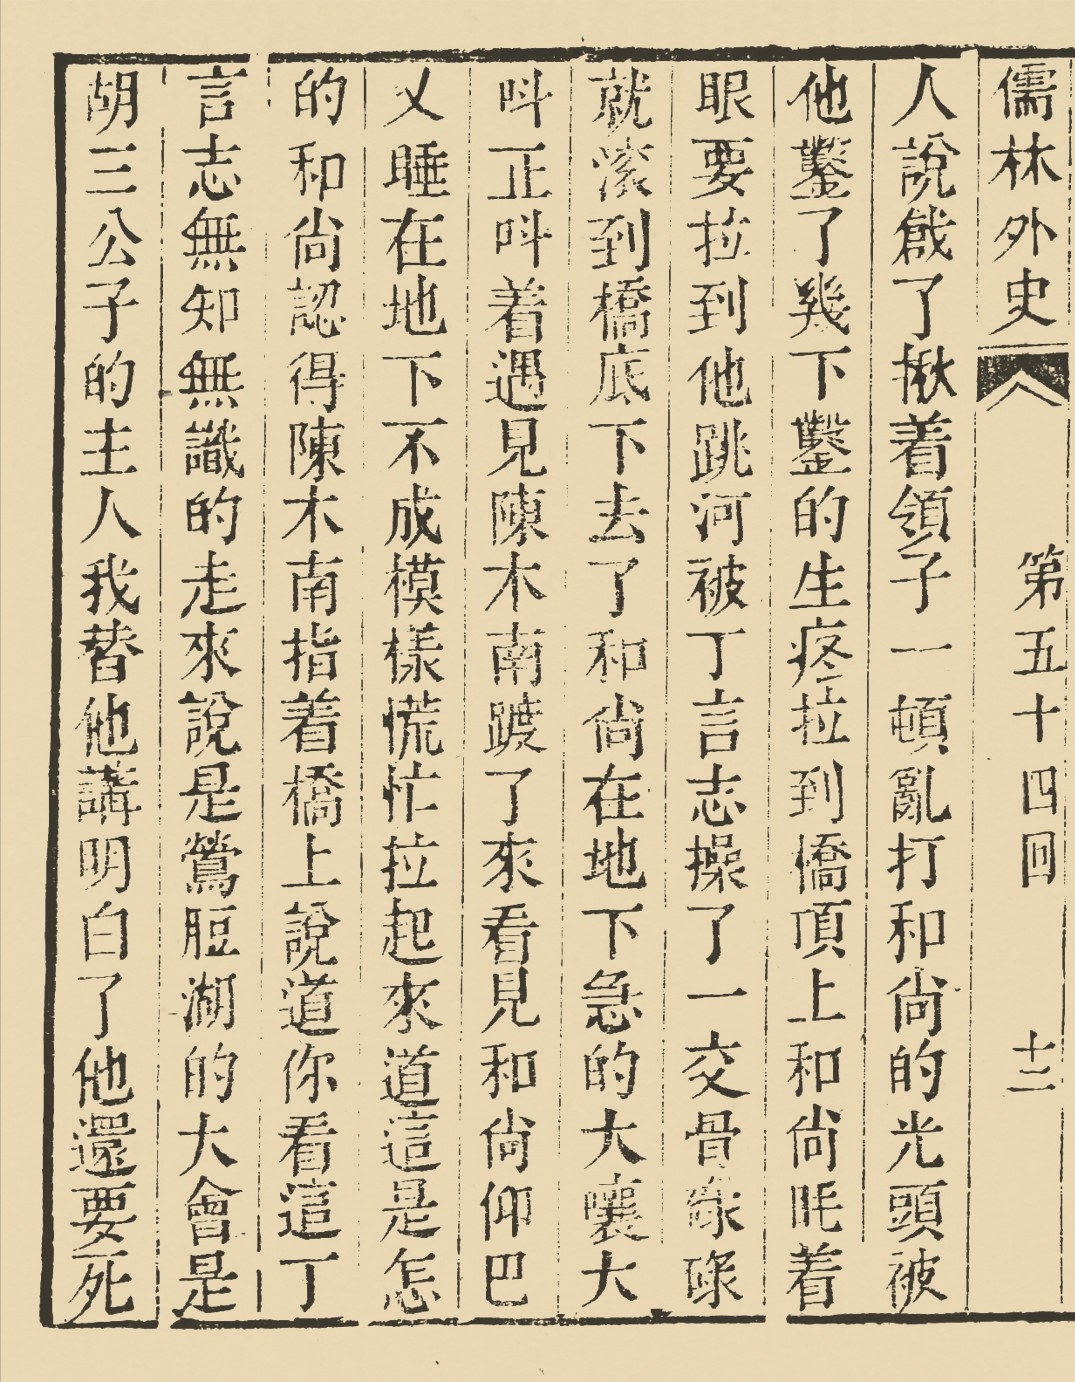 儒林外史 第五十四回 十二
人說戧了揪着領子一頓亂打和尙的光頭被
他鑿了幾下鑿的生疼拉到橋頂上和尙眊着
眼要拉到他跳河被丁言志搡了一交骨碌碌
就滚到橋底下去了和尙在地下急的大嚷大
呌正呌着遇見陳木南踱了來看見和尙仰巴
乂睡在地下不成模樣慌忙拉起來道這是怎
的和尙認得陳木南指着橋上說道你看這丁
言志無知無識的走來說是鶯脰湖的大會是
胡三公子的主人我替他講明白了他還要死